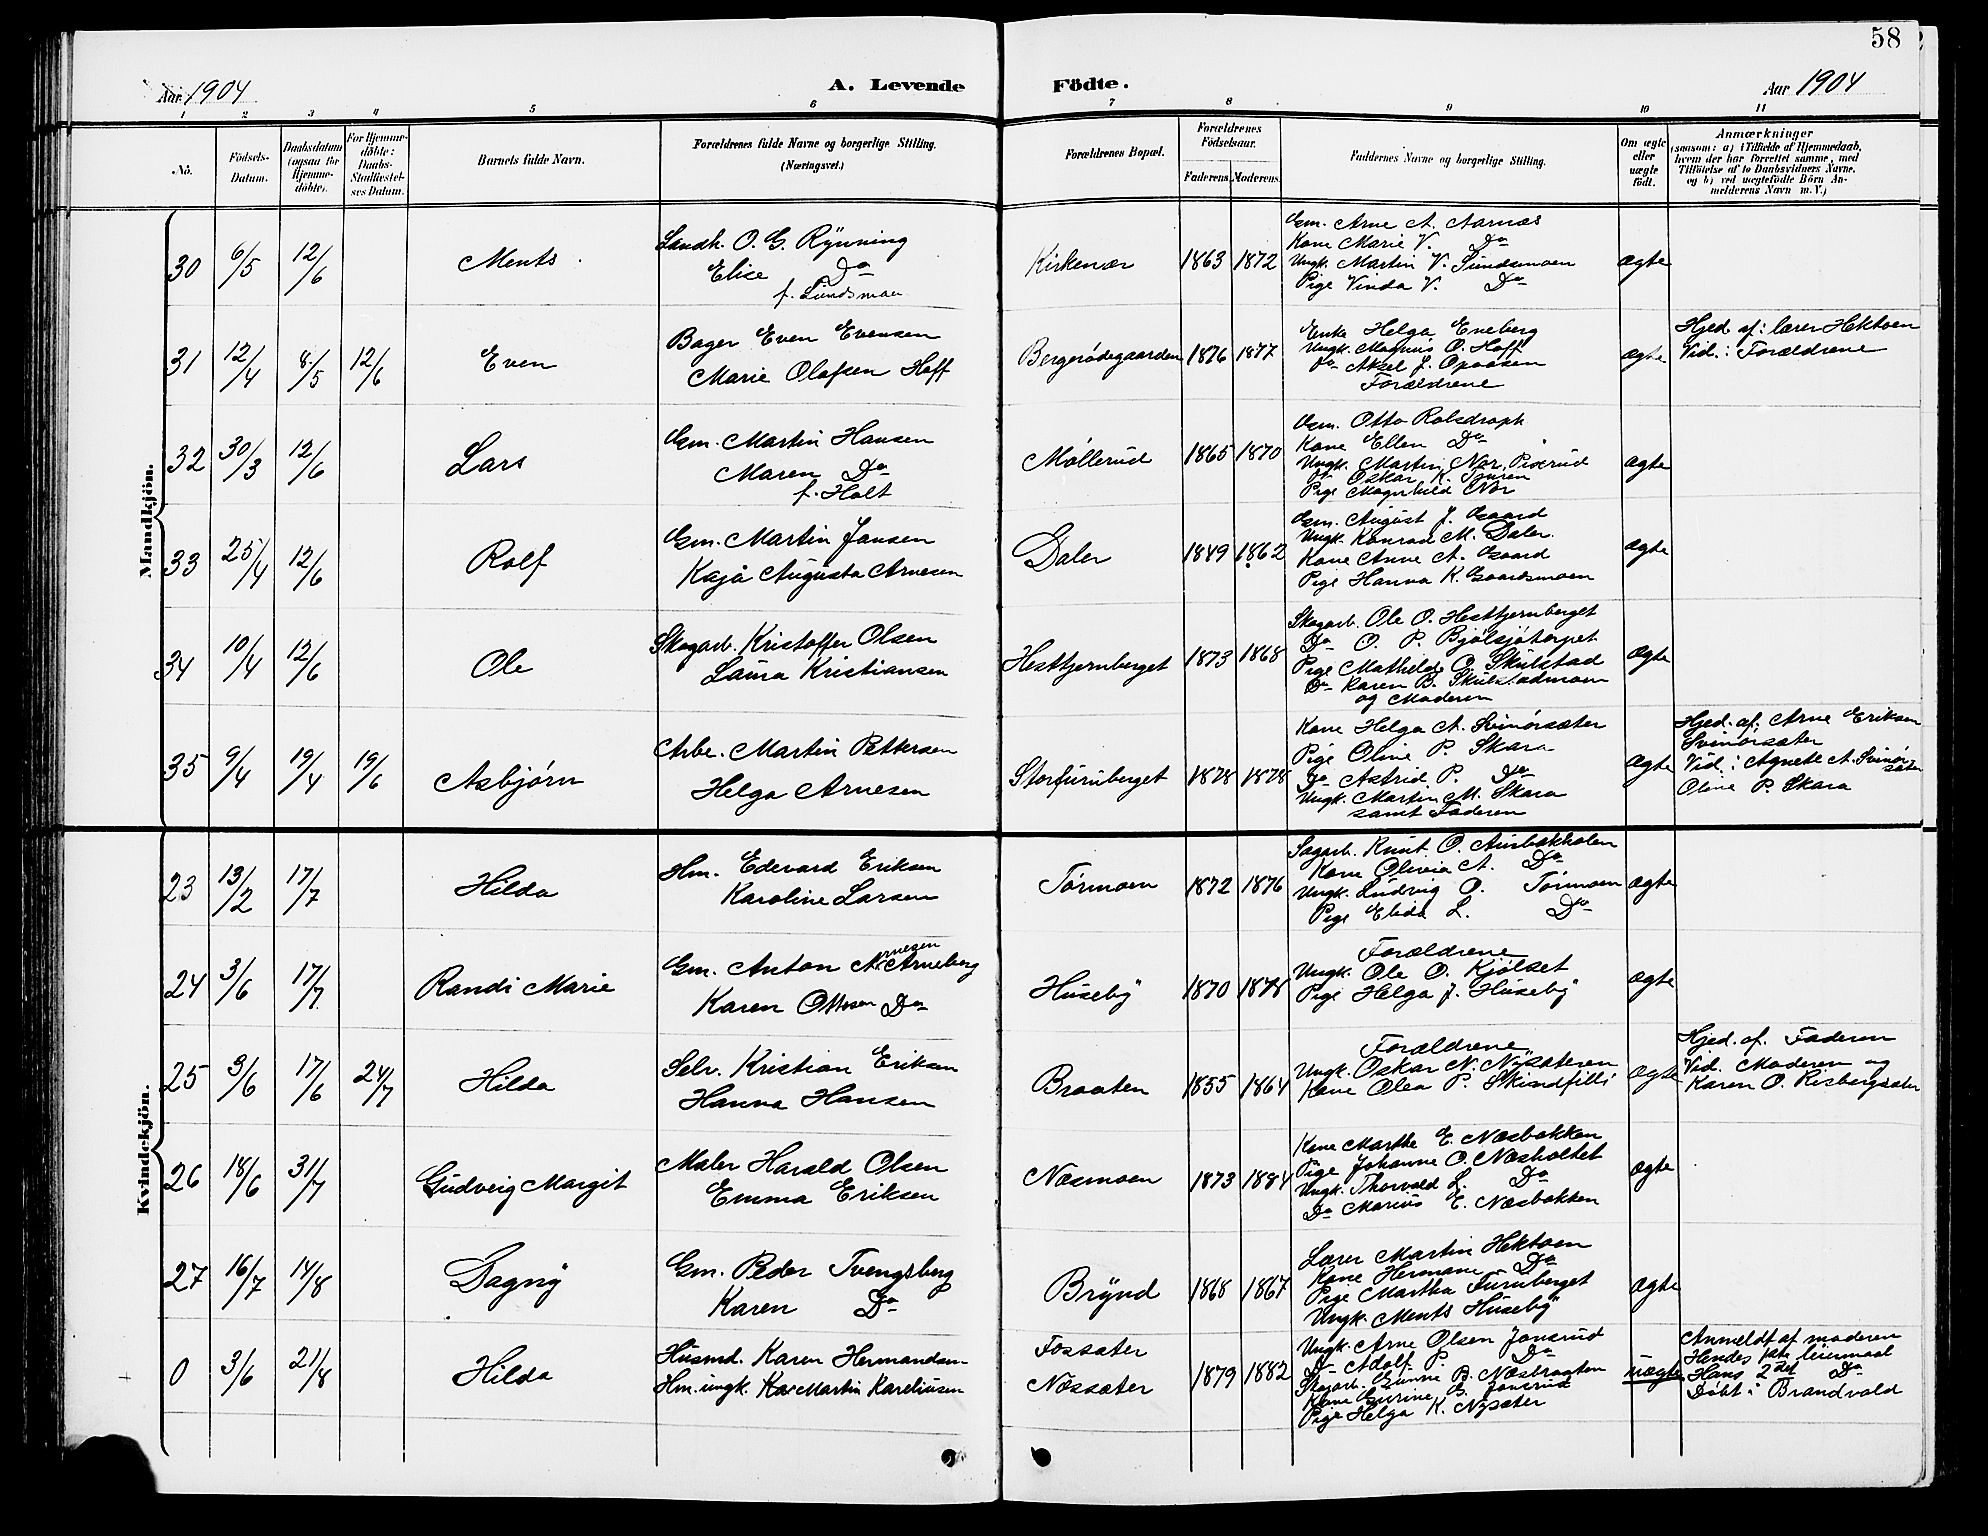 58
Aar 1904
A. Levende Födte.
Aar 1904
1 2 3 4 5 6 7 8 9 10 11
No.
Födsels-
Datum.
Daabsdatum
(ogsaa for
Hjemme-
döbte).
For Hjemme-
döbte:
Daabs-
Stadfæstel-
ses Datum.
Barnets fulde Navn.
Forældrenes fulde Navne og borgerlige Stilling.
(Næringsvei.)
Forældrenes Bopæl.
Forældrenes
Födselsaar.
Faderens Moderens
Faddernes Navne og borgerlige Stilling.
Om ægte
eller
uægte
födt.
Anmærkninger
(saasom: a) i Tilfælde af Hjemmedaab,
hvem der har forrettet samme, med
Tilföielse af to Daabsvidners Navne,
og b) ved uægtefödte Börn An-
melderens Navn m. V.)
Mandkjön.
30 6/5 12/6 Ments
Landh. O. G. Rÿnning
Elise Do
f. Sundsmoen
Kirkenær 1863 1872
Gm. Arne A. Aarnæs
Kone Marie V. Do
Ungk. Martin V. Sundsmoen
Pige Vinda V. Do
ægte
31 12/4 8/5 12/6 Even
Bager Even Evensen
Marie Olafsen Hoff
Bergerødegaarden 1876 1877
Enke Helga Eneberg
Ungk. Magnus O. Hoff
Do Aksel J. Opaasen
Forældrene
ægte
Hjed. af: lærer Hektoen
Vid.: Forældrene
32 30/3 12/6 Lars
Gm. Martin Hansen
Maren Do
f. Holt
Møllerud 1865 1870
Gm. Otto Rolsdroph
Kone Ellen Do
Ungk. Martin Nor, Piserud
Do Oskar K.
Pige Magnhild Nor
ægte
33 25/4 12/6 Rolf
Gm. Martin Jansen
Kaja Augusta Arnesen
Daler 1849 1862
Gm. August J. Gaard
Ungk. Konrad M. Daler.
Kone Anne A. Gaard
Pige Hanna K. Gaardsmoen
ægte
34 10/4 12/6 Ole
Skogarb. Kristoffer Olsen
Laura Kristiansen
Hesttjernberget 1873 1868
Skogarb. Ole O. Hesttjernberget
Do O. P. Bjølsjøtorpet
Pige Mathilde O. Skulstad
Do Karen B. Skulstadmoen
og Moderen
ægte
35 9/4 19/4 19/6 Asbjørn
Arbe. Martin Pettersen
Helga Arnesen
Storfuruberget 1878 1878
Kone Helga A. Svinørsæter
Pige Oline P. Skara
Do Astrid P. Do
Ungk. Martin M. Skara
samt Faderen
ægte
Hjed. af: Arne Eriksen
Svinørsæter
Vid.: Agnete A. Svinør-
sæter
Oline P. Skara
Kvindekjön.
23 13/2 17/7 Hilda
Hm. Edevard Eriksen
Karoline Larsen
Tørmoen 1872 1876
Sagarb. Knut O. Aurbækholen
Kone Olivia A. Do
Ungk. Ludvig O. Tørmoen
Pige Elida L. Do
ægte
24 3/6 17/7 Randi Marie
Gm. Anton Arnesen Arneberg
Karen Ottesen Do
Husebÿ 1870 1878
Forældrene
Ungk. Ole O. Kjølset
Pige Helga J. Husebÿ
ægte
25 3/6 17/6 24/7 Hilda
Selv. Kristian Eriksen
Hanna Hansen
Braaten 1855 1864
Forældrene,
Ungk. Oskar N. Nysæteren
Kone Olea P. Skindfilli
ægte
Hjed. af. Faderen
Vid. Moderen og
Karen O. Risbergsæter
26 18/6 31/7 Gudveig Margit
Maler Harald Olsen
Emma Eriksen
Næsmoen 1873 1884
Kone Marthe E. Næsbakken
Pige Johanne O. Næsholtet
Ungk. Thorvald L. Do
Do Marius E. Næsbakken
ægte
27 16/7 14/8 Dagnÿ
Gm. Peder Tvengsberg
Karen Do
Brÿnd 1868 1867
Lærer Martin Hektoen
Kone Hermane Do
Pige Martha Furuberget
Ungk. Ments Husebÿ
ægte
0 3/6 21/8 Hilda
Husmd. Karen Hermandsen
Hm. ungk. Kar Martin Kareliusen
Fossæter
Nøssæter 1879 1882
Ungk. Arne Olsen Jonsrud
Do Adolf P. Do
Skogarb. Gunne B. Næsbraaten
Kone Gurine B. Jonsrud
Pige Helga K. Nysæter
uægte
Anmeldt af moderen
Hendes 1ste leiermaal
Hans 2det Do
Døbt i Brandvold